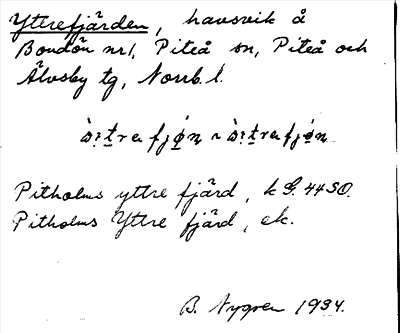 Yttrefjärden, havsvik å
Bondön nr 1, Piteå sn, Piteå och
Älvsby tg, Norrb. l.
Pitholms yttre fjärd, k G. 44 SO.
Pitholms Yttre fjärd, ek.
B. Nygren 1934.